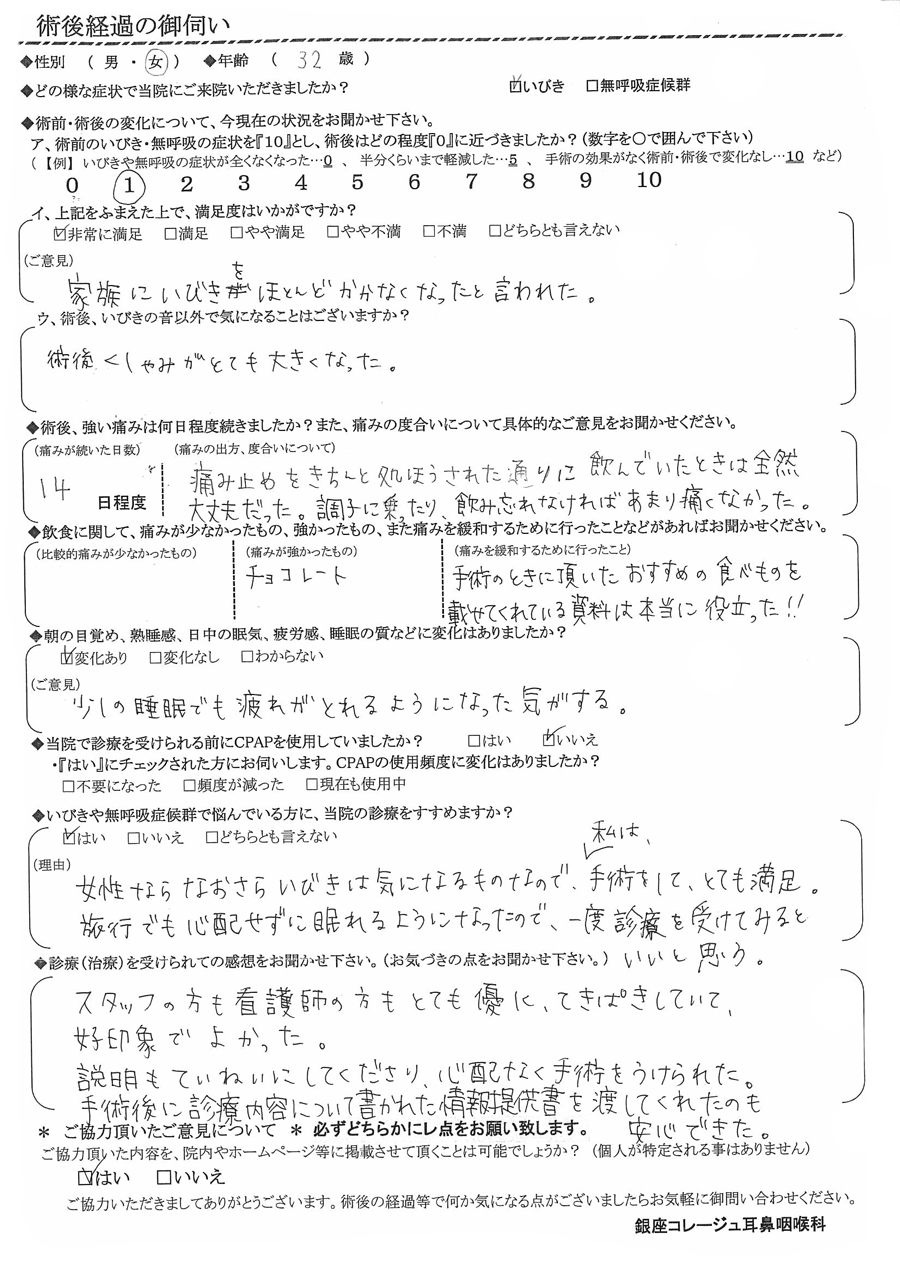 術後経過の御伺い
◆性別 ( 男 ・ 女 ) ◆年齢 ( 32 歳 )
◆どの様な症状で当院にご来院いただきましたか? ☑いびき □無呼吸症候群
◆術前・術後の変化について、今現在の状況をお聞かせ下さい。
ア、術前のいびき・無呼吸の症状を『10』とし、術後はどの程度『0』に近づきましたか?(数字を〇で囲んで下さい)
(【例】いびきや無呼吸の症状が全くなくなった…0 、 半分くらいまで軽減した…5 、 手術の効果がなく術前・術後で変化なし…10 など)
0 1 2 3 4 5 6 7 8 9 10
イ、上記をふまえた上で、満足度はいかがですか?
☑非常に満足 □満足 □やや満足 □やや不満 □不満 □どちらとも言えない
(ご意見)
家族にいびきをほとんどかかなくなったと言われた。
ウ、術後、いびきの音以外で気になることはございますか?
術後くしゃみがとても大きくなった。
◆術後、強い痛みは何日程度続きましたか?また、痛みの度合いについて具体的なご意見をお聞かせください。
(痛みが続いた日数) (痛みの出方、度合いについて)
14 日程度
痛み止めをきちんと処ほうされた通りに飲んでいたときは全然
大丈夫だった。調子に乗ったり、飲み忘れなければあまり痛くなかった。
◆飲食に関して、痛みが少なかったもの、強かったもの、また痛みを緩和するために行ったことなどがあればお聞かせください。
(比較的痛みが少なかったもの) (痛みが強かったもの) (痛みを緩和するために行ったこと)
チョコレート
手術のときに頂いたおすすめの食べものを
載せてくれている資料は本当に役立った!!
◆朝の目覚め、熟睡感、日中の眠気、疲労感、睡眠の質などに変化はありましたか?
☑変化あり □変化なし □わからない
(ご意見)
少しの睡眠でも疲れがとれるようになった気がする。
◆当院で診療を受けられる前にCPAPを使用していましたか? □はい ☑いいえ
・『はい』にチェックされた方にお伺いします。CPAPの使用頻度に変化はありましたか?
□不要になった □頻度が減った □現在も使用中
◆いびきや無呼吸症候群で悩んでいる方に、当院の診療をすすめますか?
☑はい □いいえ □どちらとも言えない
(理由)
女性ならなおさらいびきは気になるものなので、私は、手術をして、とても満足。
旅行でも心配せずに眠れるようになったので、一度診療を受けてみると
いいと思う。
◆診療(治療)を受けられての感想をお聞かせ下さい。(お気づきの点をお聞かせ下さい。)
スタッフの方も看護師の方もとても優に、てきぱきしていて、
好印象でよかった。
説明もていねいにしてくださり、心配なく手術をうけられた。
手術後に診療内容について書かれた情報提供書を渡してくれたのも
安心できた。
* ご協力頂いたご意見について * 必ずどちらかにレ点をお願い致します。
ご協力頂いた内容を、院内やホームページ等に掲載させて頂くことは可能でしょうか? (個人が特定される事はありません)
☑はい □いいえ
ご協力いただきましてありがとうございます。術後の経過等で何か気になる点がございましたらお気軽に御問い合わせください。
銀座コレージュ耳鼻咽喉科